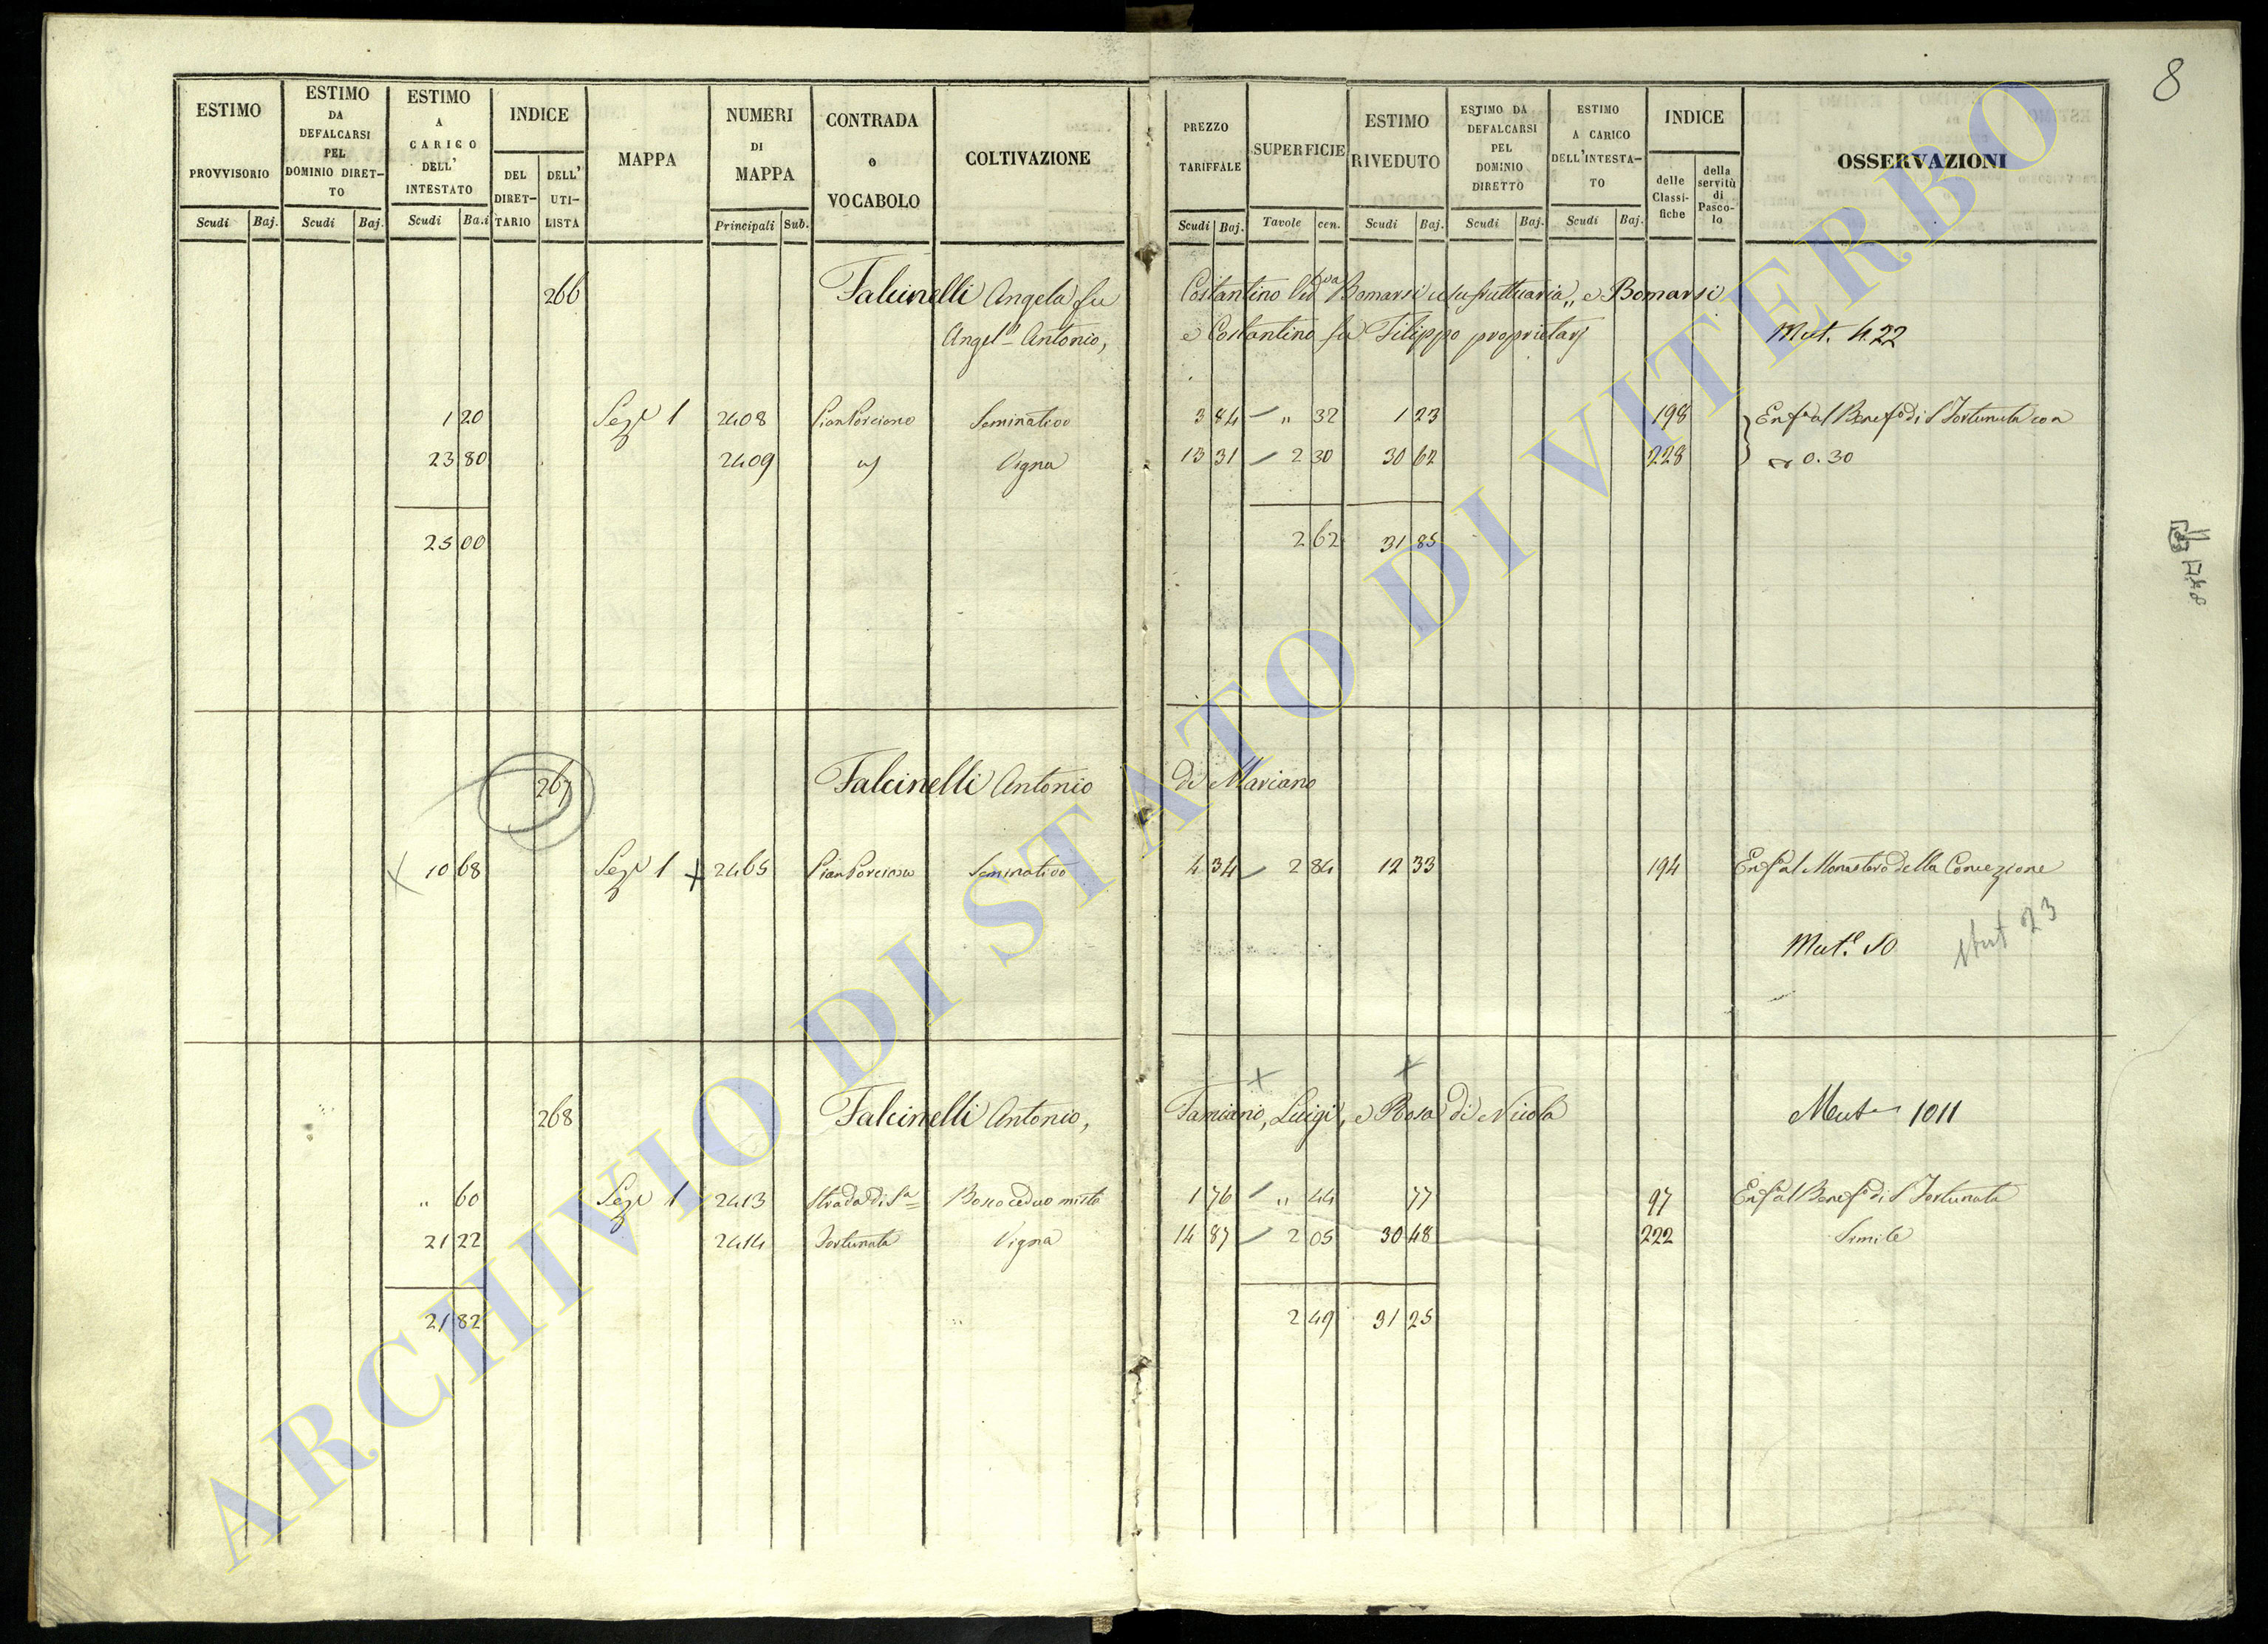 8
ESTIMO PROVVISORIO
ESTIMO DA DEFALCARSI PEL DOMINIO DIRET-TO
ESTIMO A CARICO DELL' INTESTATO
INDICE
DEL DIRET-TARIO
DELL' UTI-LISTA
MAPPA
NUMERI DI MAPPA
CONTRADA o VOCABOLO
COLTIVAZIONE
PREZZO TARIFFALE
SUPERFICIE
ESTIMO RIVEDUTO
ESTIMO DA DEFALCARSI PEL DOMINIO DIRETTO
ESTIMO A CARICO DELL'INTESTA-TO
INDICE
delle Classi-fiche
della servitù di Pasco-lo
OSSERVAZIONI
Scudi Baj. Scudi Baj. Scudi Ba.i Principali Sub. Scudi Baj. Tavole cen. Scudi Baj. Scudi Baj. Scudi Baj.
266 Falcinelli Angela fu Costantino Ved.va Bomarsi usufruttuaria,, e Bomarsi
Angelo Antonio, e Costantino fu Filippo proprietarj Mut. 422
1 20 Sez.e 1 2408 Pian Porciano Seminativo 3 84 „ 32 1 23 198 Enf.a al Benef.o di S. Fortunata con
23 80 2409 Vigna 13 31 2 30 30 62 228 0.30
25 00 2 62 31 85
267 Falcinelli Antonio di Mariano
10 68 Sez.e 1 2465 Pian Porciano Seminativo 4 34 2 84 12 33 194 Enf.a al Monastero della Concezione
Mut.e 50 Mut 23
268 Falcinelli Antonio, Famiano, Luigi, e Rosa di Nicola Mut 1011
„ 60 Sez.e 1 2413 Strada di S.a Bosco ceduo misto 1 76 „ 44 77 97 Enf.a al Benef.o di S. Fortunata
21 22 2414 Fortunata Vigna 14 87 2 05 30 48 222 Simile
21 82 2 49 31 25
ARCHIVIO DI STATO DI VITERBO